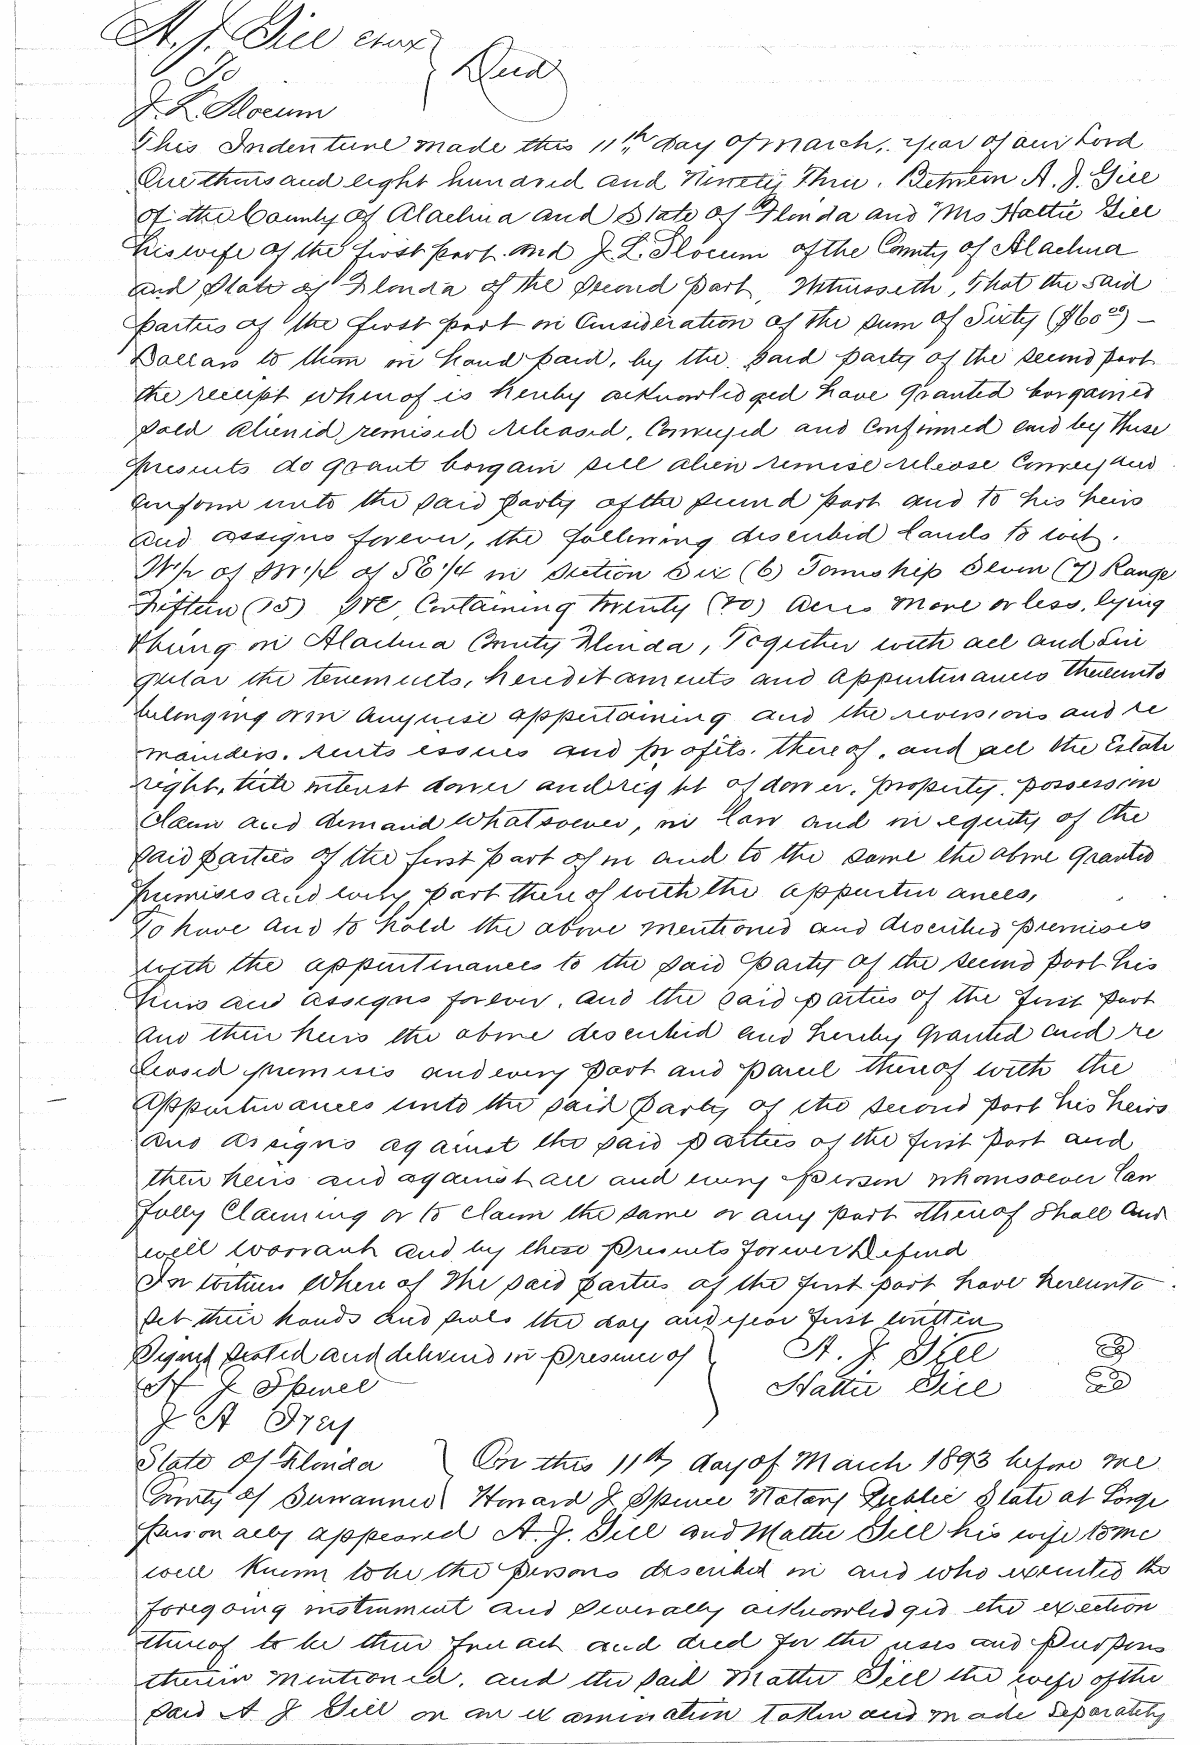 A. J. Gill et ux }
To } Deed
J. L. Slocum
This Indenture made this 11th day of March, year of our Lord
One thousand eight hundred and Ninety Three. Between A. J. Gill
of the County of Alachua and State of Florida and Mrs Hattie Gill
his wife of the first part and J. L. Slocum of the County of Alachua
and State of Florida of the Second part, Witnesseth, That the said
parties of the first part in Consideration of the sum of Sixty ($60 00) —
Dollars to them in hand paid, by the said party of the second part
the receipt whereof is hereby acknowledged have granted bargained
sold aliened remised released, Conveyed and Confirmed and by these
presents do grant bargain sell alien remise release Convey and
Confirm unto the said party of the second part and to his heirs
and assigns forever, the following described lands to wit.
W1/2 of SW1/4 of SE1/4 in Section Six (6) Township Seven (7) Range
Fifteen (15) Containing twenty (20) Acres More or less, lying
& being in Alachua County Florida, Together with all and Sin
gular the tenements, hereditaments and appurtenances thereunto
belonging or in anywise appertaining and the reversions and re
mainders. rents issues and profits. thereof, and all the Estate
right, title interest dower and right of dower, property. possession
Claim and demand whatsoever, in law and in equity of the
said parties of the first part of in and to the same the above granted
premises and every part there of with the appurtenances,
To have and to hold the above mentioned and described premises
with the appurtenances to the said party of the second part his
heirs and assigns forever. and the said parties of the first part
and their heirs the above described and hereby granted and re
leased premises and every part and parcel thereof with the
appurtenances unto the said party of the second part his heirs
and assigns against the said parties of the first part and
their heirs and against all and every person whomsoever law
fully Claiming or to claim the same or any part thereof shall and
will warrant and by these presents forever Defend
In witness where of The said parties of the first part have hereunto
set their hands and seals the day and year first written
Signed sealed and delivered in presence of } A. J. Gill
H J Spence } Hattie Gill
J A Frey
State of Florida } On this 11th day of March 1893 before me
County of Suwannee } Howard J Spence Notary Public State at Large
personally appeared A. J. Gill and Mattie Gill his wife to me
well known to be the persons described in and who executed the
foregoing instrument and severally acknowledged the exection
thereof to be their free act and deed for the uses and purposes
therein mentioned, and the said Mattie Gill the wife of the
said A J Gill on an examination taken and made separately